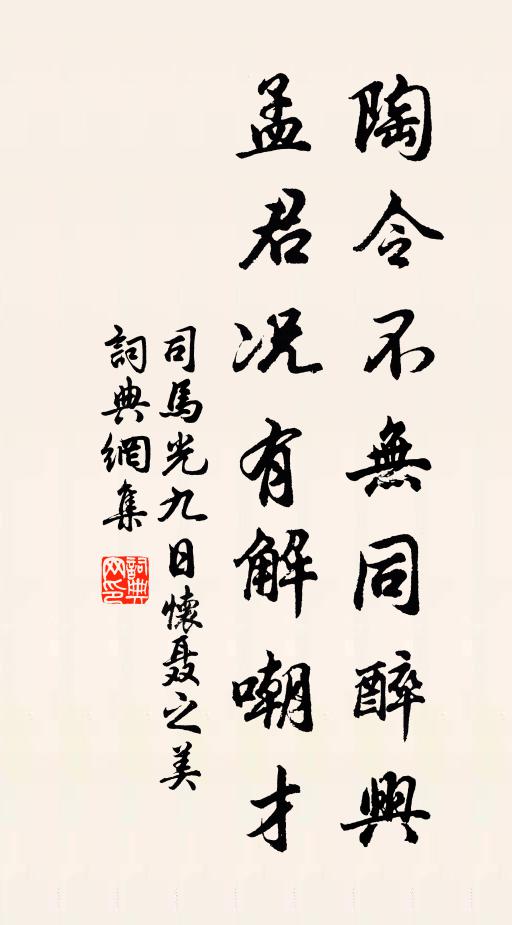 陶令不無同醉興
孟君况有解嘲才
司馬光九日懷聂之美
詞典網集
詞典网印